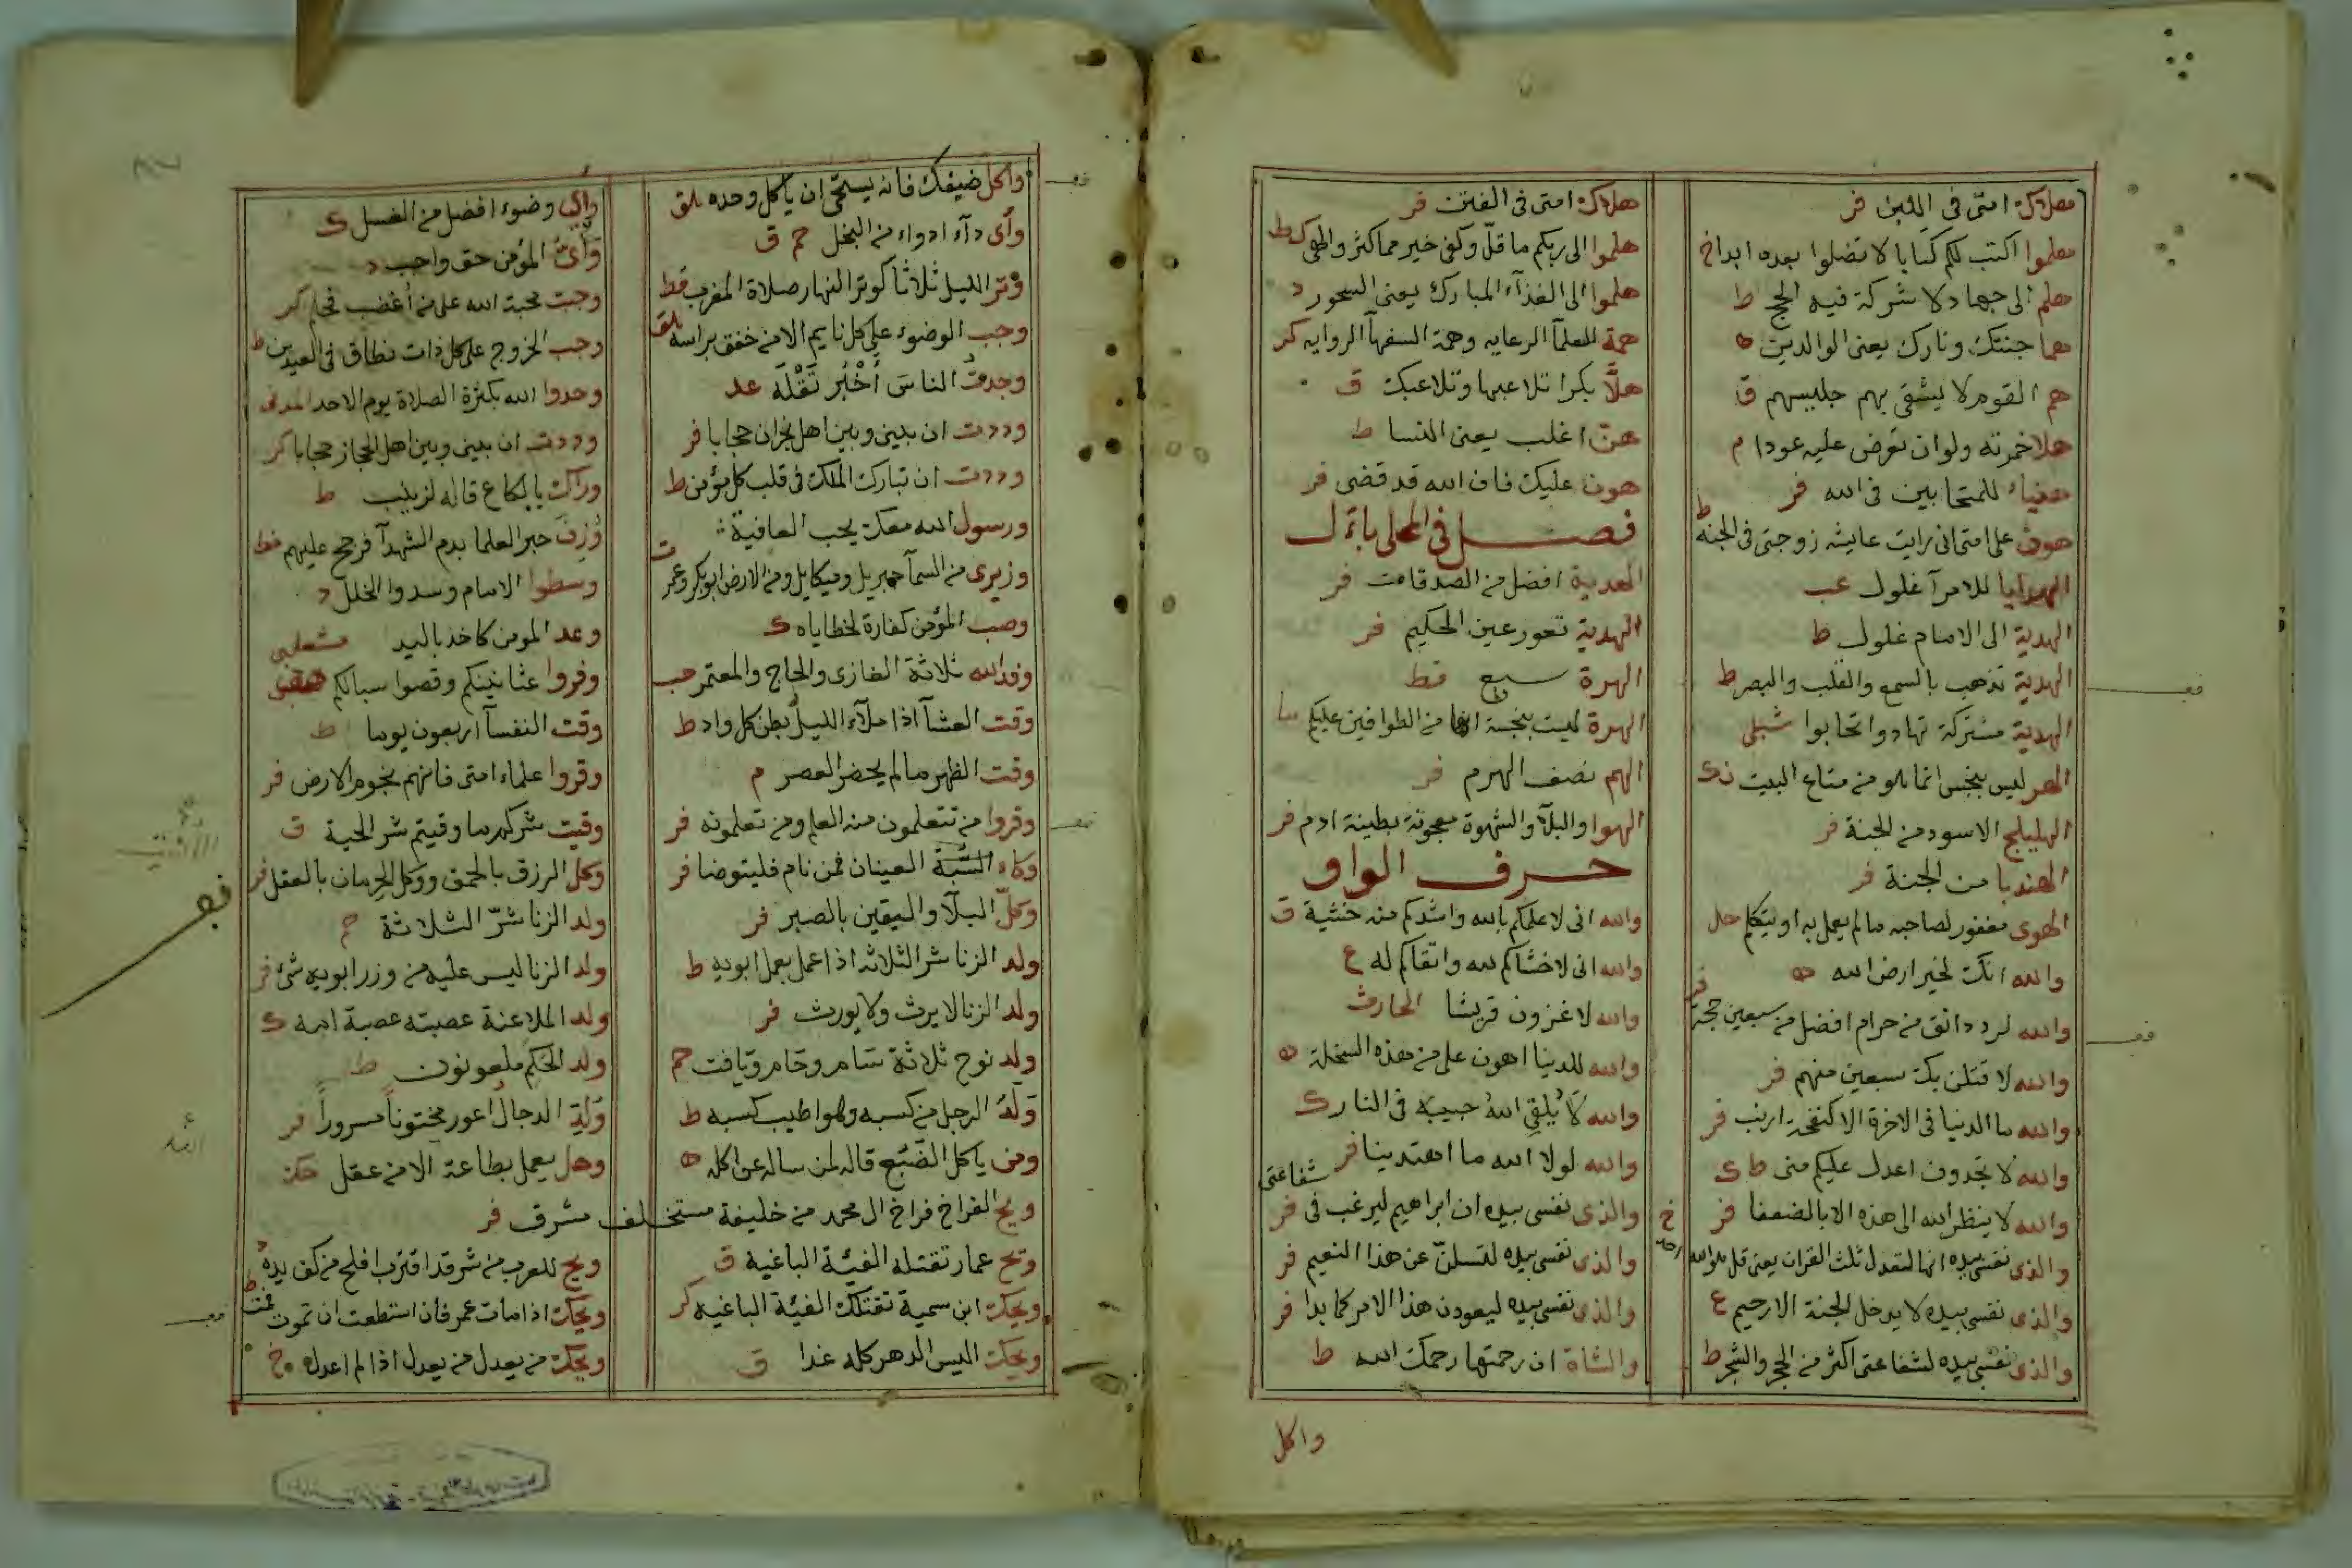 هلاك امتى فى اللبن فر
هلموا اكتب لكم كتابا لا تضلوا بعده ابدا خ
هلم الى جهاد لا شركة فيه الحج ط
هما جنتك ونارك يعنى الوالدين ه
هم القوم لا يشقى بهم جليسهم ق
هلا خمرته ولو ان تعرض عليه عودا م
هنيا للمتحابين فى الله فر
هون على امتى انى رايت عايشه زوجتى فى الجنة ط
الهدايا للامرآ غلول عب
الهدية الى الامام غلول ط
الهدية تذهب بالسمع والقلب والبصر ط
الهدية مشتركة تهادوا تحابوا
الهر ليس بنجس انما هو من متاع البيت
الهليلج الاسود من الجنة فر
الهندبا من الجنة فر
الهوى مغفور لصاحبه ما لم يعمل به او يتكلم حل
والله انك لخير ارض الله ه
والله لرد دانق من حرام افضل من سبعين حجة فر
والله لا قتلن بك سبعين منهم فر
والله ما الدنيا فى الاخرة الا كنفخة ارنب فر
والله لا تجدون اعدل عليكم منى ط ك
والله لا ينظر الله الى هذه الا بالضعفا فر
والذى نفسى بيده انها لتعدل ثلث القران يعنى قل هو الله احد خ
والذى نفسى بيده لا يدخل الجنة الا رحيم ع
والذى نفسى بيده لشفاعتى اكثر من الحجر والشجر ط
هلاك امتى فى الفتن فر
هلموا الى ربكم ما قل وكفى خير مما كثر والهى ك ط
هلموا الى الغذآء المبارك يعنى السحور د
همة العلمآ الرعايه وهمة السفهآ الروايه كر
هلّا بكرا تلاعبها وتلاعبك ق
هن اغلب يعنى النسا ط
هون عليك فان الله قد قضى فر
فصل فى المحلى باءل
الهدية افضل من الصدقات فر
الهدية تعور عين الحكيم فر
الهرة سبع قط
الهرة ليست بنجسة انها من الطوافين عليكم
الهم نصف الهرم فر
الهوا والبلآ والشهوة معجونة بطينة ادم فر
حرف الواو
والله انى لا علمكم بالله واشدكم منه خشية ق
والله انى لاخشاكم لله واتقاكم له ع
والله لاغزون قريشا الحارث
والله للدنيا اهون على من هذه السخلة ه
والله لا يُلقى اللهُ حبيبه فى النار ك
والله لولا الله ما اهتدينا فر
والذى نفسى بيده ان ابراهيم ليرغب فى شفاعتى فر
والذى نفسى بيده لتسلنّ عن هذا النعيم فر
والذى نفسى بيده ليعودن هذا الامر كما بدا فر
والشاة ان رحمتها رحمك الله ط
واكل
واكل ضيفك فانه يستحى ان ياكل وحده هق
وأى دآء ادواء من البخل حم ق
وتر الليل ثلاثا كوتر النهار صلاة المغرب قط
وجب الوضوء على كل نايم الا من خفق براسه هق
وجدت الناسَ أُخْبُر تَقْلَه عد
وددت ان بينى وبين اهل نجران حجابا فر
وددت ان تبارك الملك فى قلب كل مؤمن ط
ورسول الله معك يحب العافية
وزيرى من السمآ جبريل وميكايل ومن الارض ابو بكر وعمر ت
وصب المؤمن كفارة لخطاياه ك
وفد الله ثلاثة الغازى والحاج والمعتمر حب
وقت العشآ اذا ملآء الليل بطن كل واد ط
وقت الظهر ما لم يحضر العصر م
وقروا من تتعلمون منه العلم ومن تعلمونه فر
وكاء السّهَ العينان فمن نام فليتوضا فر
وكلّ البلآ واليقين بالصبر فر
ولد الزنا شر الثلاثه اذا عمل بعمل ابويه ط
ولد الزنا لا يرث ولا يورث فر
ولد نوح ثلاثة سام وحام ويافت حم
وَلَدُ الرجل من كسبه وهو اطيب كسبه ط
ومن ياكل الضَّبُع قاله لمن ساله عن اكله ه
ويح الفراخ فراخ ال محمد من خليفة مستخلف مشرق فر
ويح عمار تقتله الفيّة الباغيه ق
ويحك ابن سمية تقتلك الفيّة الباغيه كر
ويحك اليس الدهر كله غدا ق
واى وضوء افضل من الغسل ك
وَأْىُ المؤمن حق واجب د
وجبت محبة الله على من أغضب فحلم كر
وجب الخروج على كل ذات نطاق فى العيدين ط
وحدوا الله بكثرة الصلاة يوم الاحد المدنى
وددت ان بينى وبين اهل الحجاز حجابا كر
ورآك يا لكاع قاله لزينب ط
وُزِنَ حبر العلما بدم الشهدآ فرجح عليهم خط
وسطوا الامام وسدوا الخلل د
وعد المومن كاخذ باليد
وفروا عثانينكم وقصوا سبالكم هق
وقت النفسآ اربعون يوما ط
وقروا علماء امتى فانهم نجوم الارض فر
وقيت شركم ما وقيتم شر الحية ق
وكل الرزق بالحمق ووكل الحرمان بالعقل فر
ولد الزنا شرّ الثلاثة حم
ولد الزنا ليس عليه من وزر ابويه شئ فر
ولد الملاعنة عصبته عصبة امه ك
ولد الحكم ملعونون ط
وَلَدِ الدجال اعور مختوناً مسروراً فر
وهل يعمل بطاعة الا من عقل
ويح للعرب من شر قد اقترب افلح من كف يده د
ويحك اذا مات عمر فان استطعت ان تموت فمت ط
ويحك من يعدل من يعدل اذا لم اعدل خ